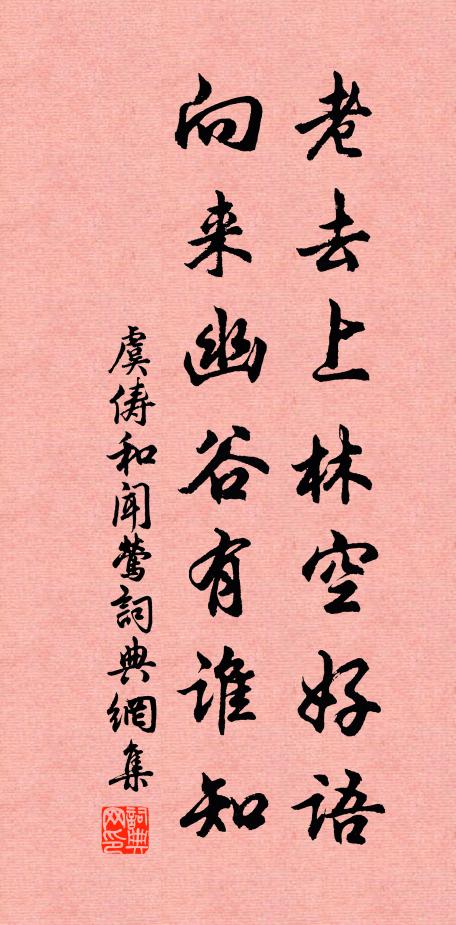 老去上林空好语
向来幽谷有谁知
虞俦和闻莺詞典網集
詞典网印